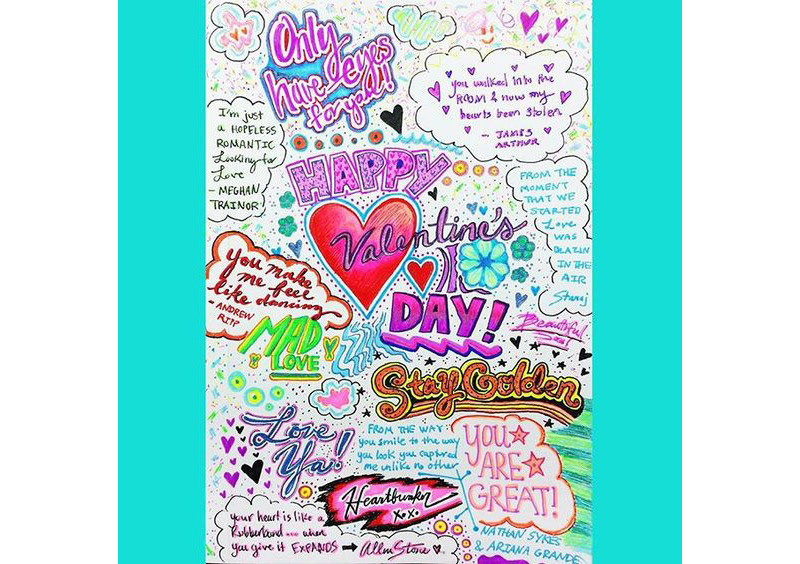 Only
have eyes
for you!!
you walked into the
ROOM & now my
hearts been stolen
- JAMES
ARTHUR
I'm just
a HOPELESS
ROMANTIC
Looking for
Love
- MEGHAN
TRAINOR
HAPPY
Valentine's
DAY!
FROM THE
MOMENT
THAT WE
STARTED
Love
WAS
BLAZIN
IN THE
AIR
You make
me feel
like dancing
- ANDREW
RIPP
MAD
LOVE
Beautiful
Soul
Stay Golden
Love
Ya!
FROM THE WAY
you smile to the way
you look you captured
me unlike no other
YOU
ARE
GREAT!
Heartbreaker
X.O.X.O.
NATHAN SYKES
& ARIANA GRANDE
your heart is like a
Rubberband ... when
you give it EXPANDS → Allen Stone